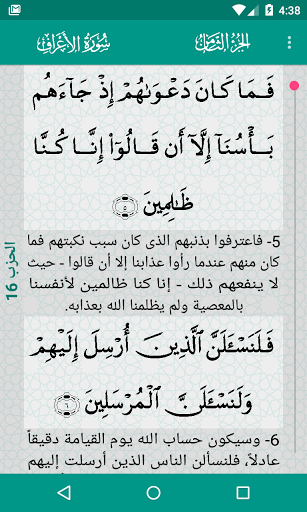 4:38
سُورَةُ الأَعْرَاف
الجُزْءُ الثَّامِنُ
فَمَا كَانَ دَعْوَىٰهُمْ إِذْ جَآءَهُم
بَأْسُنَآ إِلَّآ أَن قَالُوٓا۟ إِنَّا كُنَّا
ظَٰلِمِينَ ٥
5- فاعترفوا بذنبهم الذى كان سبب نكبتهم فما
كان منهم عندما رأوا عذابنا إلا أن قالوا - حيث لا
ينفعهم ذلك - إنا كنا ظالمين لأنفسنا
بالمعصية ولم يظلمنا الله بعذابه.
الحزب 16
فَلَنَسْـَٔلَنَّ ٱلَّذِينَ أُرْسِلَ إِلَيْهِمْ
وَلَنَسْـَٔلَنَّ ٱلْمُرْسَلِينَ ٦
6- وسيكون حساب الله يوم القيامة دقيقاً
عادلاً، فلنسألن الناس الذين أرسلت إليهم